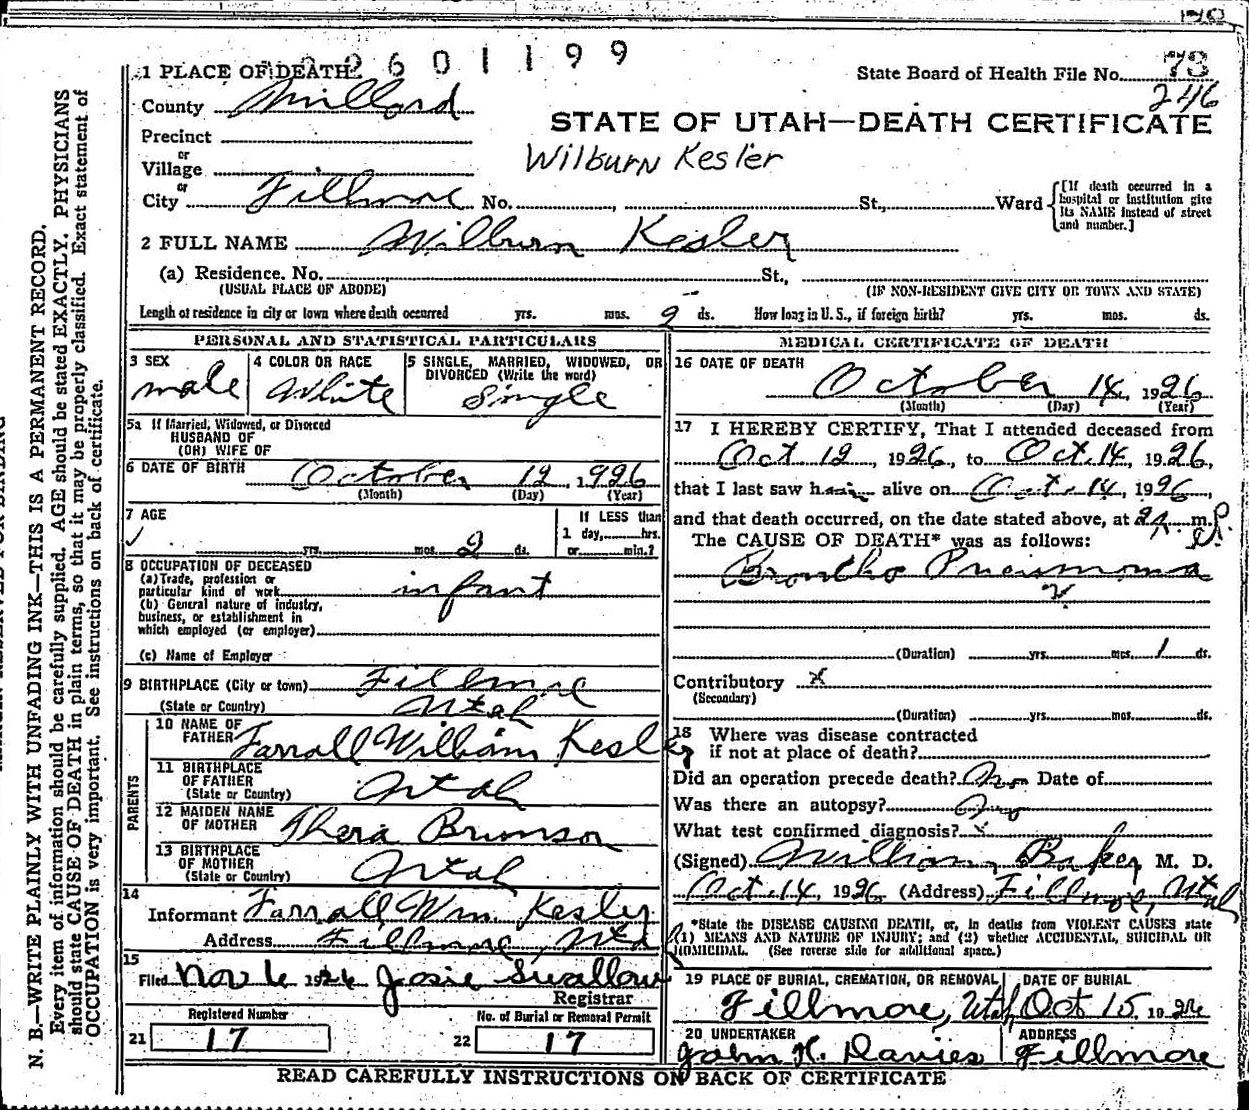 2601199
State Board of Health File No. 73
246
1 PLACE OF DEATH
County Millard
STATE OF UTAH—DEATH CERTIFICATE
Precinct
or
Village
Wilburn Kesler
or
City Fillmore No. , St., Ward
[If death occurred in a hospital or institution give its NAME instead of street and number.]
2 FULL NAME Wilburn Kesler
(a) Residence. No. St.,
(USUAL PLACE OF ABODE) (IF NON-RESIDENT GIVE CITY OR TOWN AND STATE)
Length of residence in city or town where death occurred yrs. mos. 2 ds. How long in U. S., if foreign birth? yrs. mos. ds.
PERSONAL AND STATISTICAL PARTICULARS
3 SEX male
4 COLOR OR RACE White
5 SINGLE, MARRIED, WIDOWED, OR DIVORCED (Write the word) Single
5a If Married, Widowed, or Divorced
HUSBAND OF
(OR) WIFE OF
6 DATE OF BIRTH October 12, 1926
(Month) (Day) (Year)
7 AGE yrs. mos. 2 ds.
If LESS than
1 day, hrs.
or min.?
8 OCCUPATION OF DECEASED
(a) Trade, profession or
particular kind of work infant
(b) General nature of industry,
business, or establishment in
which employed (or employer)
(c) Name of Employer
9 BIRTHPLACE (City or town) Fillmore
(State or Country) Utah
PARENTS
10 NAME OF FATHER Farrall William Kesler
11 BIRTHPLACE OF FATHER (State or Country) Utah
12 MAIDEN NAME OF MOTHER Thera Brunson
13 BIRTHPLACE OF MOTHER (State or Country) Utah
14
Informant Farrall Wm. Kesler
Address Fillmore, Utah
15
Filed Nov 6 1926 Josie Swallow
Registrar
Registered Number
21 17
No. of Burial or Removal Permit
22 17
MEDICAL CERTIFICATE OF DEATH
16 DATE OF DEATH
October 14, 1926
(Month) (Day) (Year)
17 I HEREBY CERTIFY, That I attended deceased from
Oct 12, 1926, to Oct. 14, 1926,
that I last saw him alive on Oct. 14, 1926,
and that death occurred, on the date stated above, at m.
The CAUSE OF DEATH* was as follows:
Broncho Pneumonia
(Duration) yrs. mos. 1 ds.
Contributory x
(Secondary)
(Duration) yrs. mos. ds.
18 Where was disease contracted
if not at place of death?
Did an operation precede death? No Date of
Was there an autopsy? No
What test confirmed diagnosis? x
(Signed) William Baker M. D.
Oct. 14, 1926 (Address) Fillmore, Utah
*State the DISEASE CAUSING DEATH, or, in deaths from VIOLENT CAUSES state
(1) MEANS AND NATURE OF INJURY; and (2) whether ACCIDENTAL, SUICIDAL OR
HOMICIDAL. (See reverse side for additional space.)
19 PLACE OF BURIAL, CREMATION, OR REMOVAL Fillmore, Utah
DATE OF BURIAL Oct 15, 1926
20 UNDERTAKER John H. Davies
ADDRESS Fillmore
READ CAREFULLY INSTRUCTIONS ON BACK OF CERTIFICATE
N. B.—WRITE PLAINLY WITH UNFADING INK—THIS IS A PERMANENT RECORD.
Every item of information should be carefully supplied. AGE should be stated EXACTLY. PHYSICIANS
should state CAUSE OF DEATH in plain terms, so that it may be properly classified. Exact statement of
OCCUPATION is very important. See instructions on back of certificate.